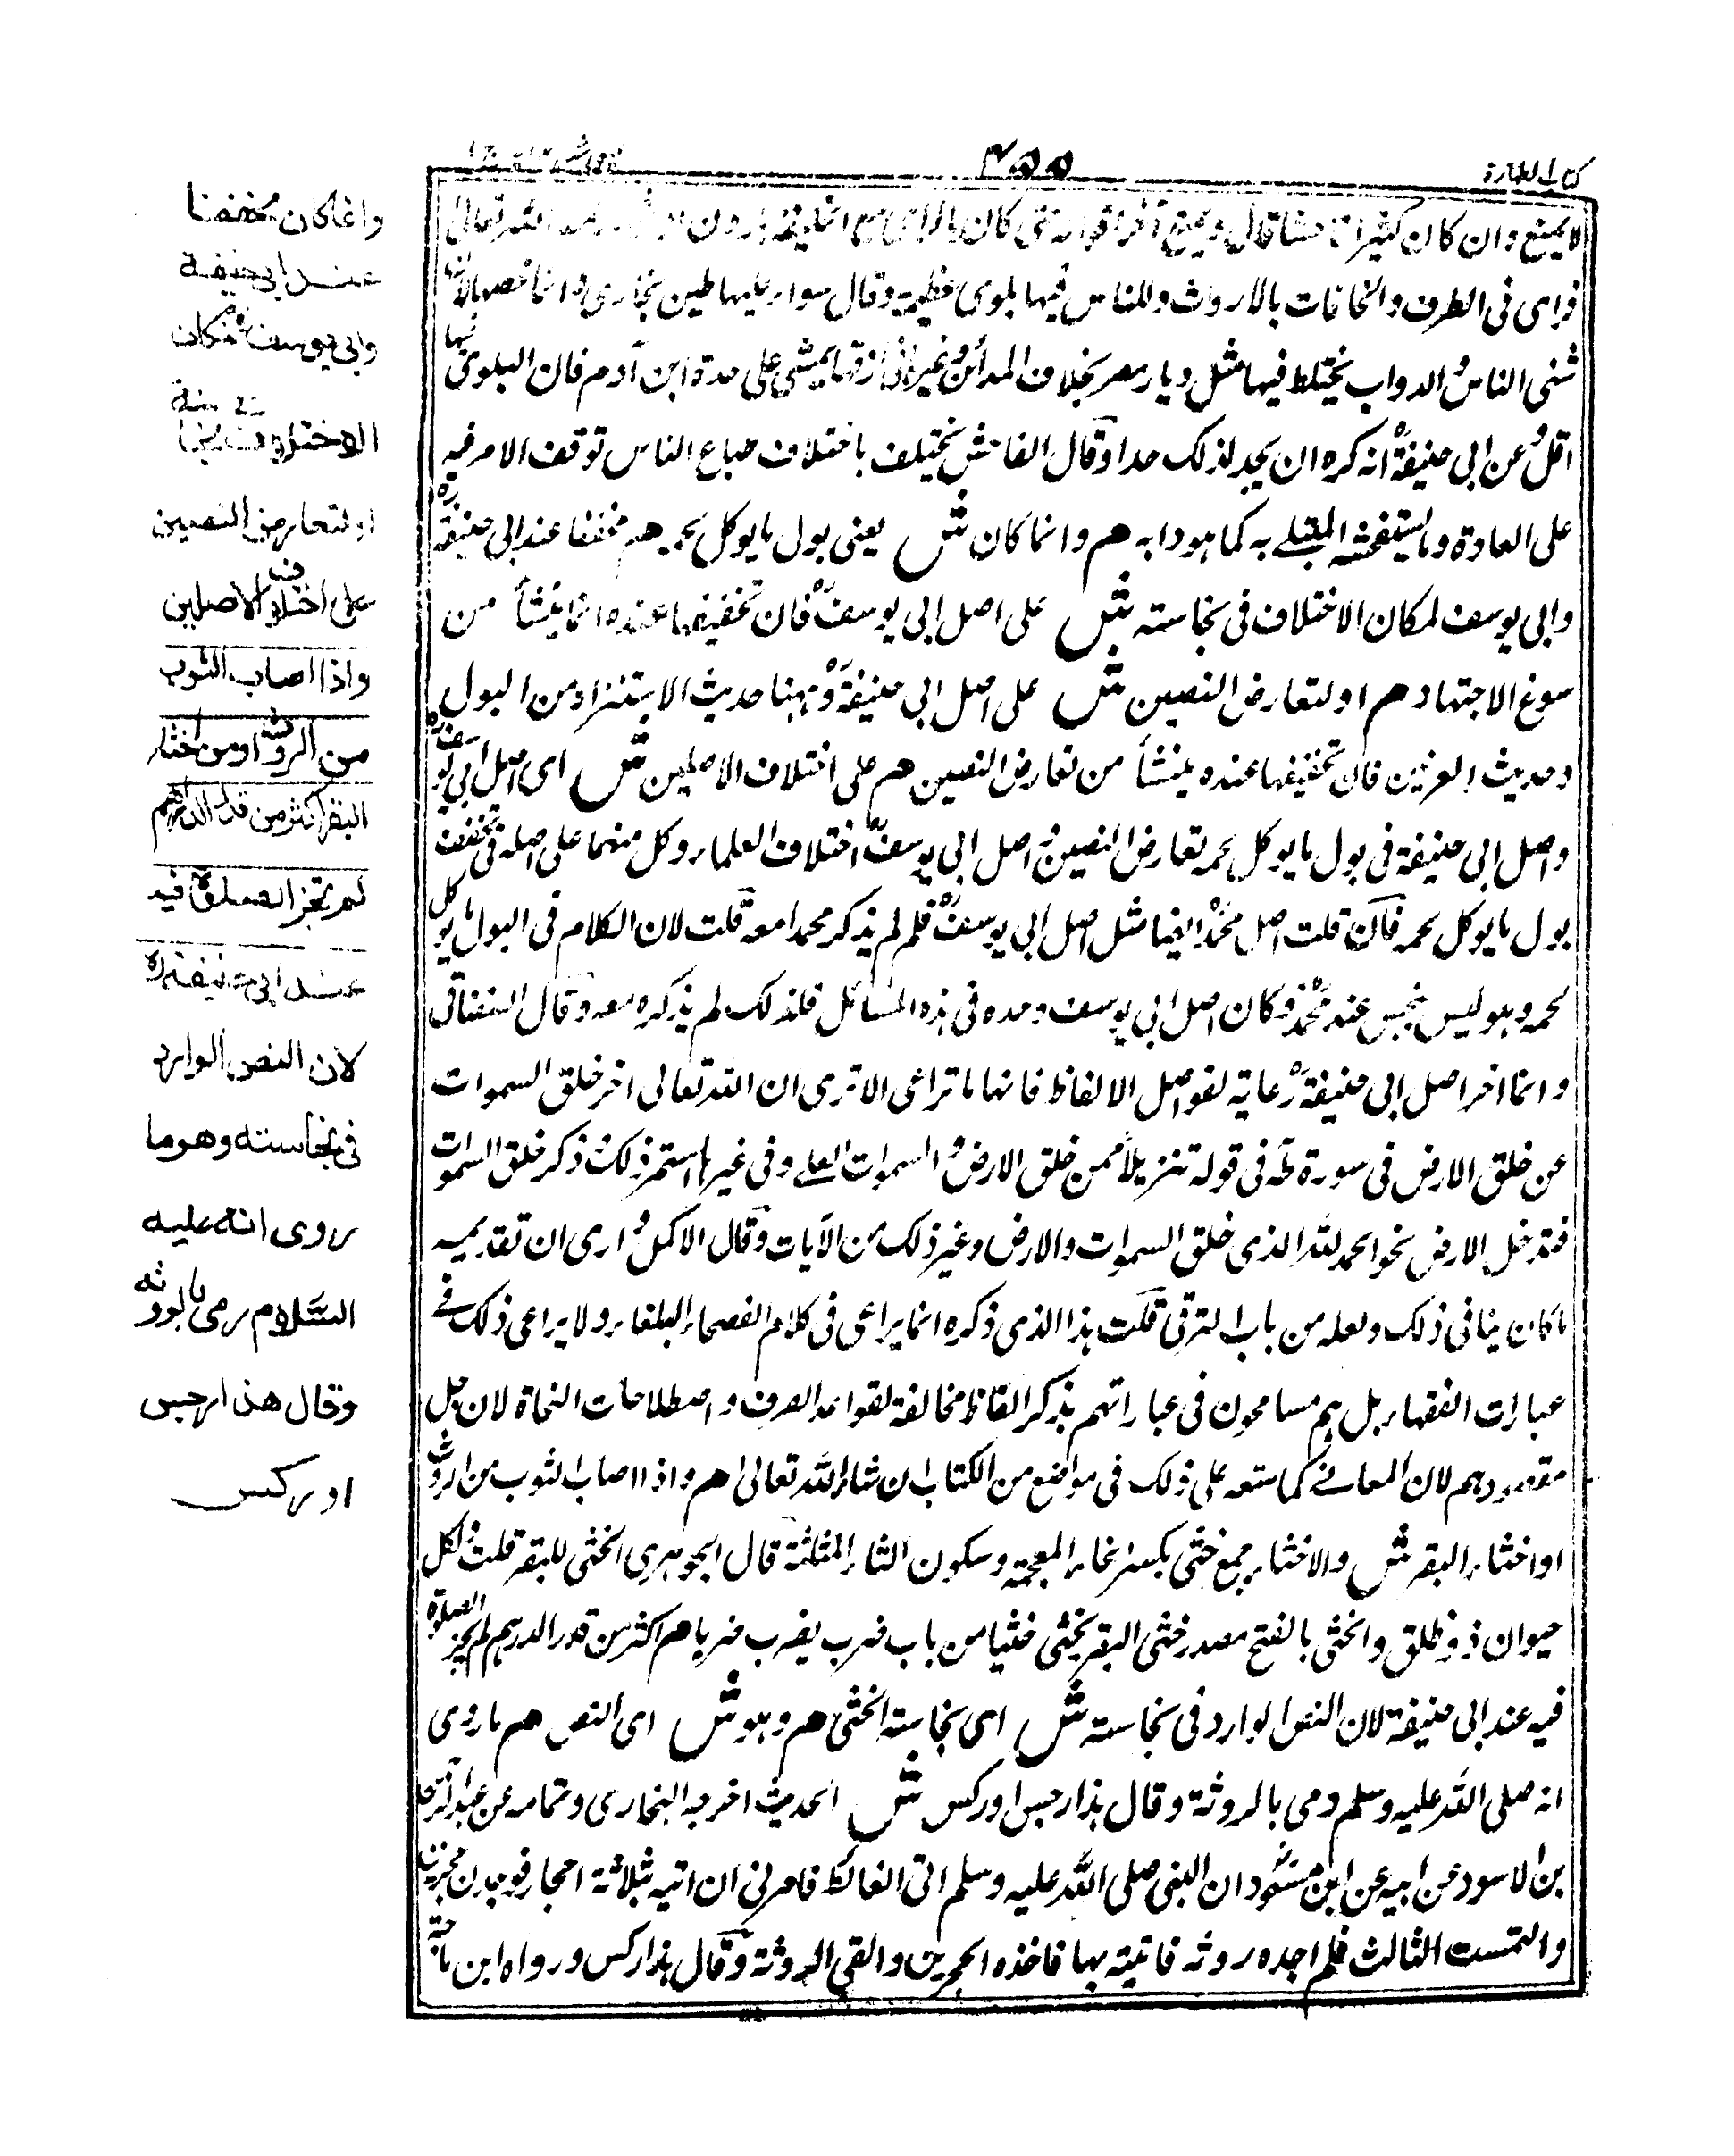 كتاب الطهارة
٤٥٥
لا يمنع وان كان كثيرا فاحشا قال ويمنع آخر اقواله حتى كان بالرى مع الخليفة هارون الله تعالى
فراى فى الطرق والخانات بالارواث وللناس فيها بلوى عظيمة وقال سوار عليها طين بخارى وانما خصها لان
مشى الناس والدواب يختلط فيها مثل ديار مصر بخلاف المدائن وغيرها فى ازقتها يمشى على حدة ابن آدم فان البلوى فيها
اقل وعن ابى حنيفةؒ انه كره ان يحد لذلك حدا وقال الفاحش يختلف باختلاف طباع الناس توقف الامر فيه
على العادة وما يستفحشه المبتلى به كما هو دابه هم وانما كان ش يعنى بول ما يوكل لحمه هم مخففا عند ابى حنيفةؒ
وابى يوسف لمكان الاختلاف فى نجاسته ش على اصل ابى يوسفؒ فان تخفيفها عنده انما ينشأ من
سوغ الاجتهاد هم او لتعارض النصين ش على اصل ابى حنيفةؒ وههنا حديث الاستنزاه من البول
وحديث العرنيين فان تخفيفها عنده ينشأ من تعارض النصين هم على اختلاف الاصلين ش اى اصل ابى يوسفؒ
واصل ابى حنيفة فى بول ما يوكل لحمه تعارض النصين وفى اصل ابى يوسفؒ اختلاف العلماء وكل منهما على اصله فى تخفيف
بول ما يوكل لحمه فان قلت اصل محمدؒ ايضا مثل اصل ابى يوسفؒ فلم لم يذكر محمدا معه قلت لان الكلام فى البول ما يوكل
لحمه وهو ليس بنجس عند محمدؒ وكان اصل ابى يوسف وحده فى هذه المسائل فلذلك لم يذكره معه وقال السغناقى
وانما اخر اصل ابى حنيفةؒ رعاية لفواصل الالفاظ فانها ما تراعى الا ترى ان الله تعالى اخر خلق السموات
عن خلق الارض فى سورة طه فى قوله تنزيلا ممن خلق الارض والسموات العلى وفى غيرها استمر ذلك ذكر خلق السموات
فتدخل الارض نحو الحمد لله الذى خلق السموات والارض وغير ذلك من الآيات وقال الاكمل وارى ان تقديمه
ما كان ينافى ذلك ولعله من باب الترقى قلت هذا الذى ذكره انما يراعى فى كلام الفصحاء البلغاء ولا يراعى ذلك فى
عبارات الفقهاء بل هم مسامحون فى عباراتهم بذكر الفاظ مخالفة لقواعد الصرف واصطلاحات النحاة لان جل
مقصودهم لان المعانى كما ستعه على ذلك فى مواضع من الكتاب ان شاء الله تعالى هم واذا اصاب الثوب من الروث
او اخثاء البقر ش والاخثاء جمع خثى بكسر الخاء المعجمة وسكون الثاء المثلثة قال الجوهرى الخثى للبقر قلت ولكل
حيوان ذو ظلف والخثى بالفتح مصدر خثى البقر يخثى خثيا من باب ضرب يضرب ضربا هم اكثر من قدر الدرهم لم يجز الصلوة
فيه عند ابى حنيفة لان النص الوارد فى نجاسته ش اى نجاسة الخثى هم وهو ش اى النص هم ما روى
انه صلى الله عليه وسلم رمى بالروثة وقال هذا رجس او ركس ش الحديث اخرجه البخارى وتمامه عن عبد الرحمن
بن الاسود عن ابيه عن ابن مسعود ان النبى صلى الله عليه وسلم اتى الغائط فامرنى ان اتيه بثلاثة احجار فوجدت حجرين
والتمست الثالث فلم اجده روثه فاتيته بها فاخذه الحجرين والقى الروثة وقال هذا ركس ورواه ابن ماجة
وانما كان مخففا
عند ابى حنيفة
وابى يوسف لمكان
الاختلاف فى نجاسته
او لتعارض النصين
على اختلاف الاصلين
واذا اصاب الثوب
من الروث او من اخثاء
البقر اكثر من قدر الدرهم
لم يجز الصلوة فيه
عند ابى حنيفة ره
لان النص الوارد
فى نجاسته وهو ما
روى انه عليه
السلام رمى بالروثه
وقال هذا رجس
او ركس